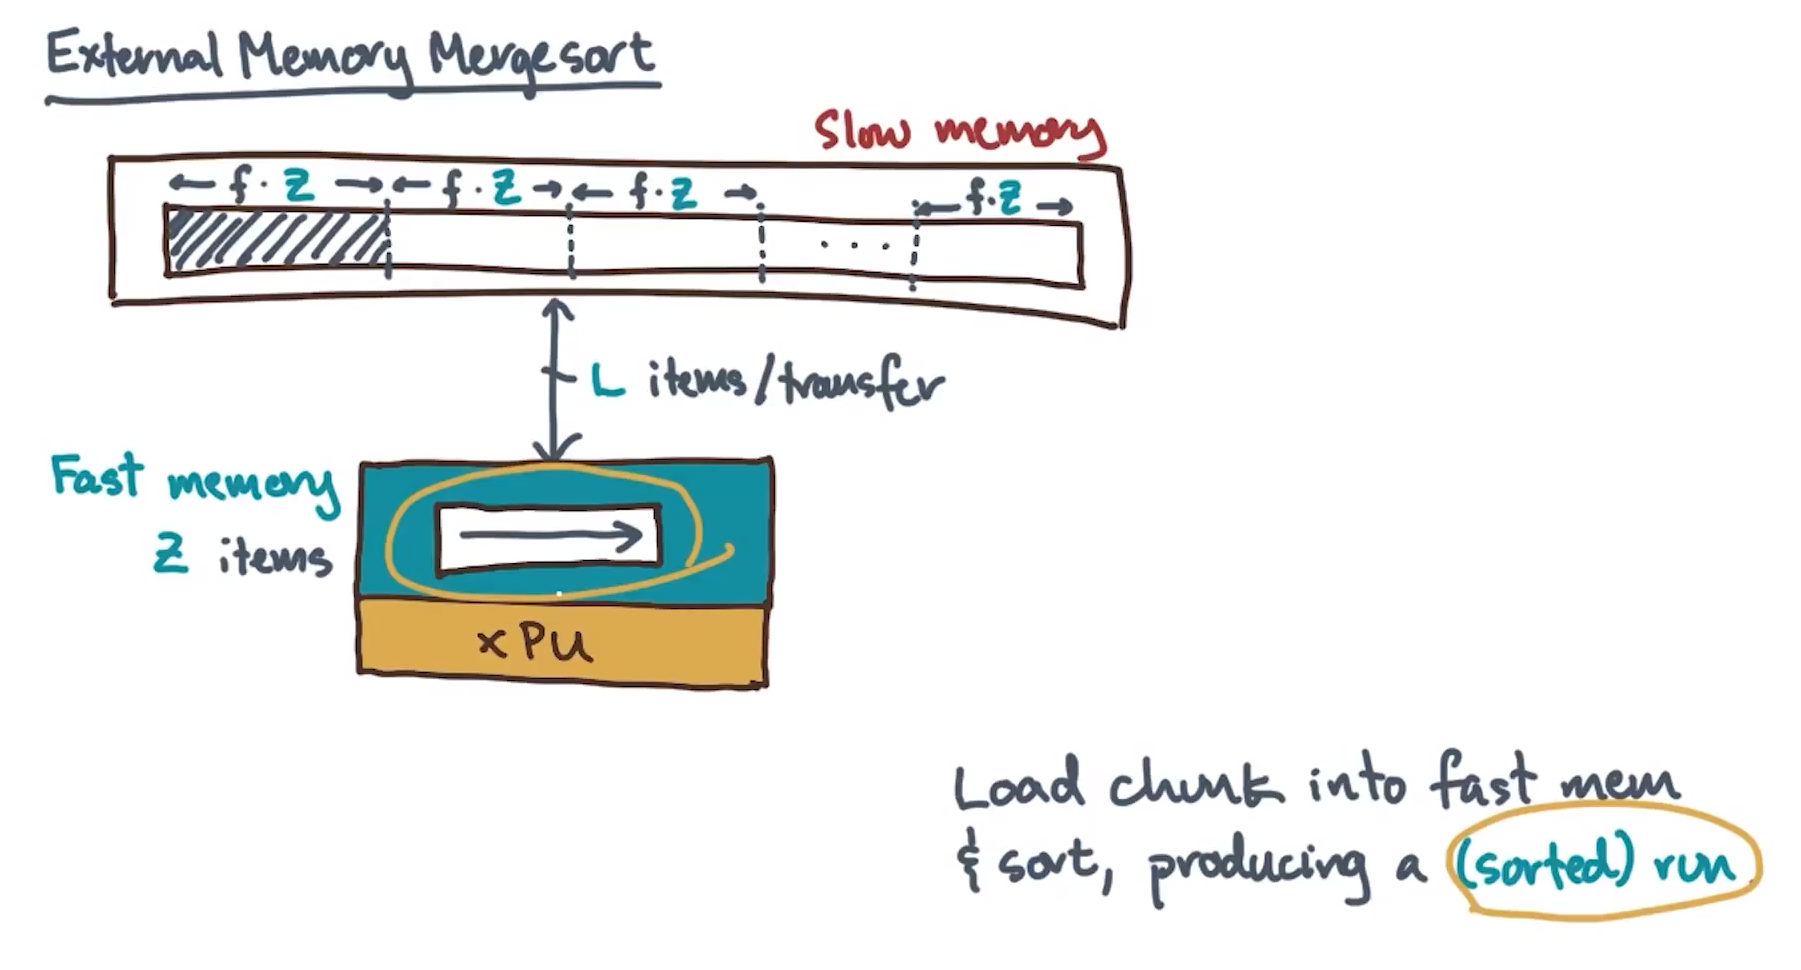 External Memory Mergesort
Slow memory
f · Z f · Z f · Z f · Z
. . .
L items/transfer
Fast memory
Z items
xPU
Load chunk into fast mem
& sort, producing a (sorted) run